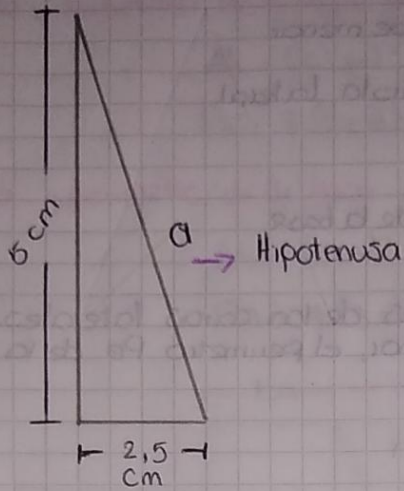 8 cm
a
→ Hipotenusa
2,5
cm